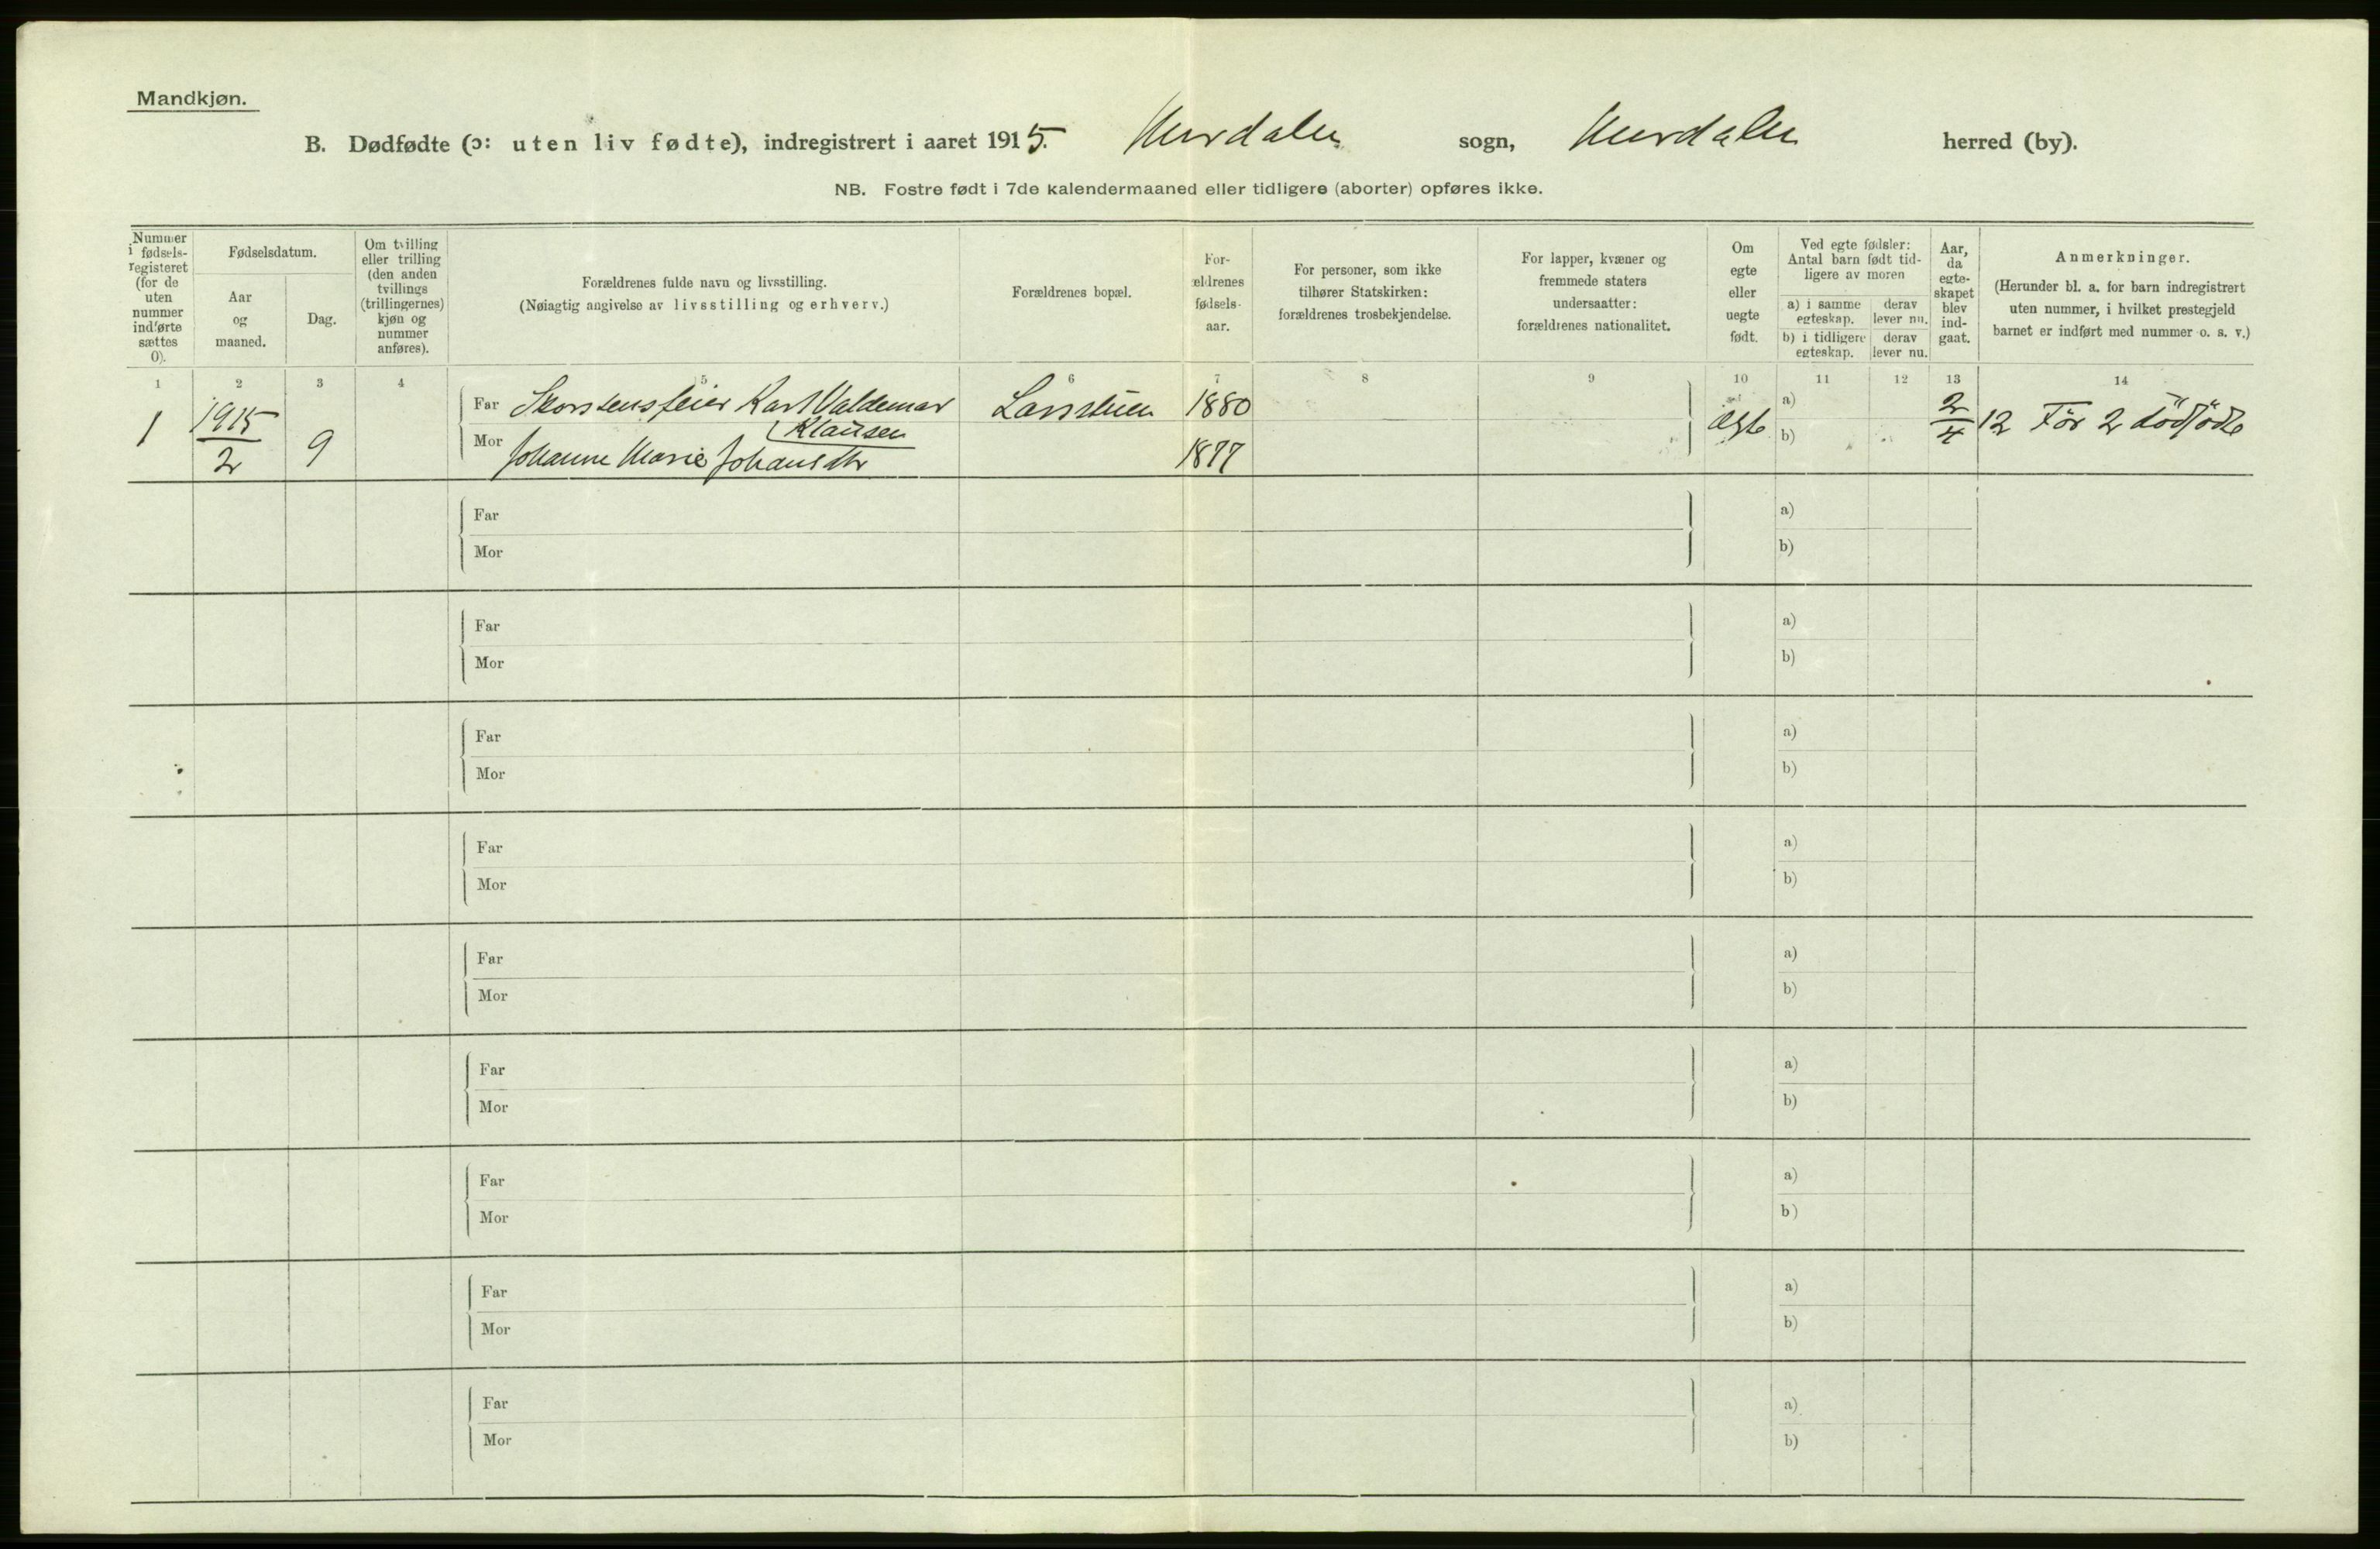 Mandkjøn.
B. Dødfødte (ɔ: uten liv fødte), indregistrert i aaret 1915. Hurdalen sogn, Hurdalen herred (by).
NB. Fostre født i 7de kalendermaaned eller tidligere (aborter) opføres ikke.
Nummer i fødsels-registeret (for de uten nummer indførte sættes 0).
Fødselsdatum.
Aar og maaned.
Dag.
Om tvilling eller trilling (den anden tvillings (trillingernes) kjøn og nummer anføres).
Forældrenes fulde navn og livsstilling.
(Nøiagtig angivelse av livsstilling og erhverv.)
Forældrenes bopæl.
For-ældrenes fødsels-aar.
For personer, som ikke tilhører Statskirken: forældrenes trosbekjendelse.
For lapper, kvæner og fremmede staters undersaatter: forældrenes nationalitet.
Om egte eller uegte født.
Ved egte fødsler: Antal barn født tid-ligere av moren
a) i samme egteskap.
derav lever nu.
b) i tidligere egteskap.
derav lever nu.
Aar, da egte-skapet blev ind-gaat.
Anmerkninger.
(Herunder bl. a. for barn indregistrert uten nummer, i hvilket prestegjeld barnet er indført med nummer o. s. v.)
1 2 3 4 5 6 7 8 9 10 11 12 13 14
1 1915/2 9 Far Skorstensfeier Karl Valdemar Klausen 1880 a) 2/4 12 Før 2 dödfödte
Mor Johanne Marie Johansdtr 1877 ægte b)
Far a)
Mor b)
Far a)
Mor b)
Far a)
Mor b)
Far a)
Mor b)
Far a)
Mor b)
Far a)
Mor b)
Far a)
Mor b)
Far a)
Mor b)
Far a)
Mor b)